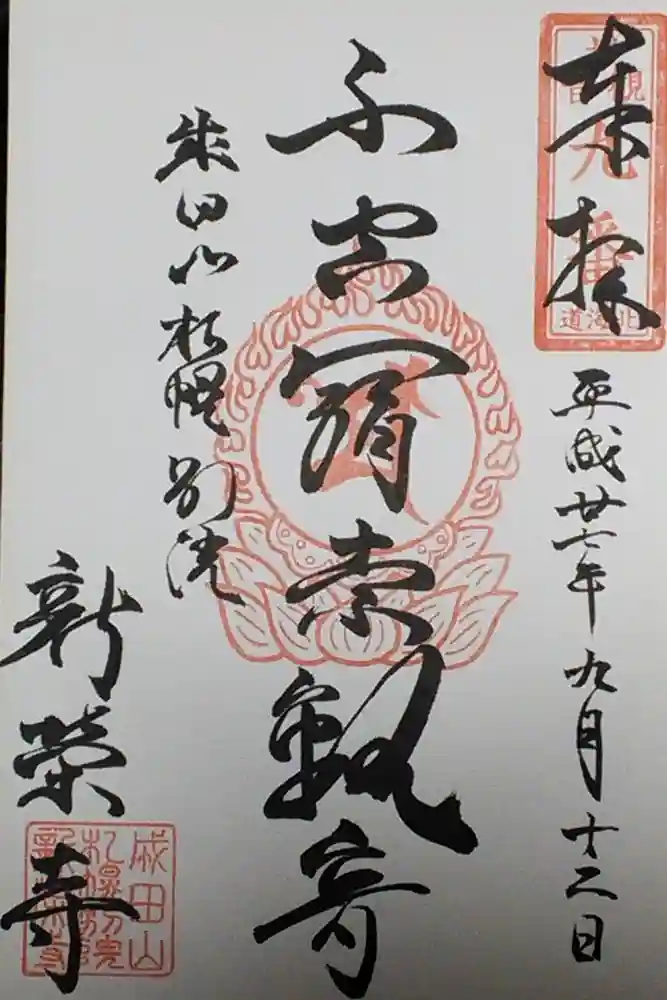 奉拝
九番
北海道
平成廿七年九月十二日
不空羂索観音
成田山札幌別院
新榮寺
成田山
札幌別院